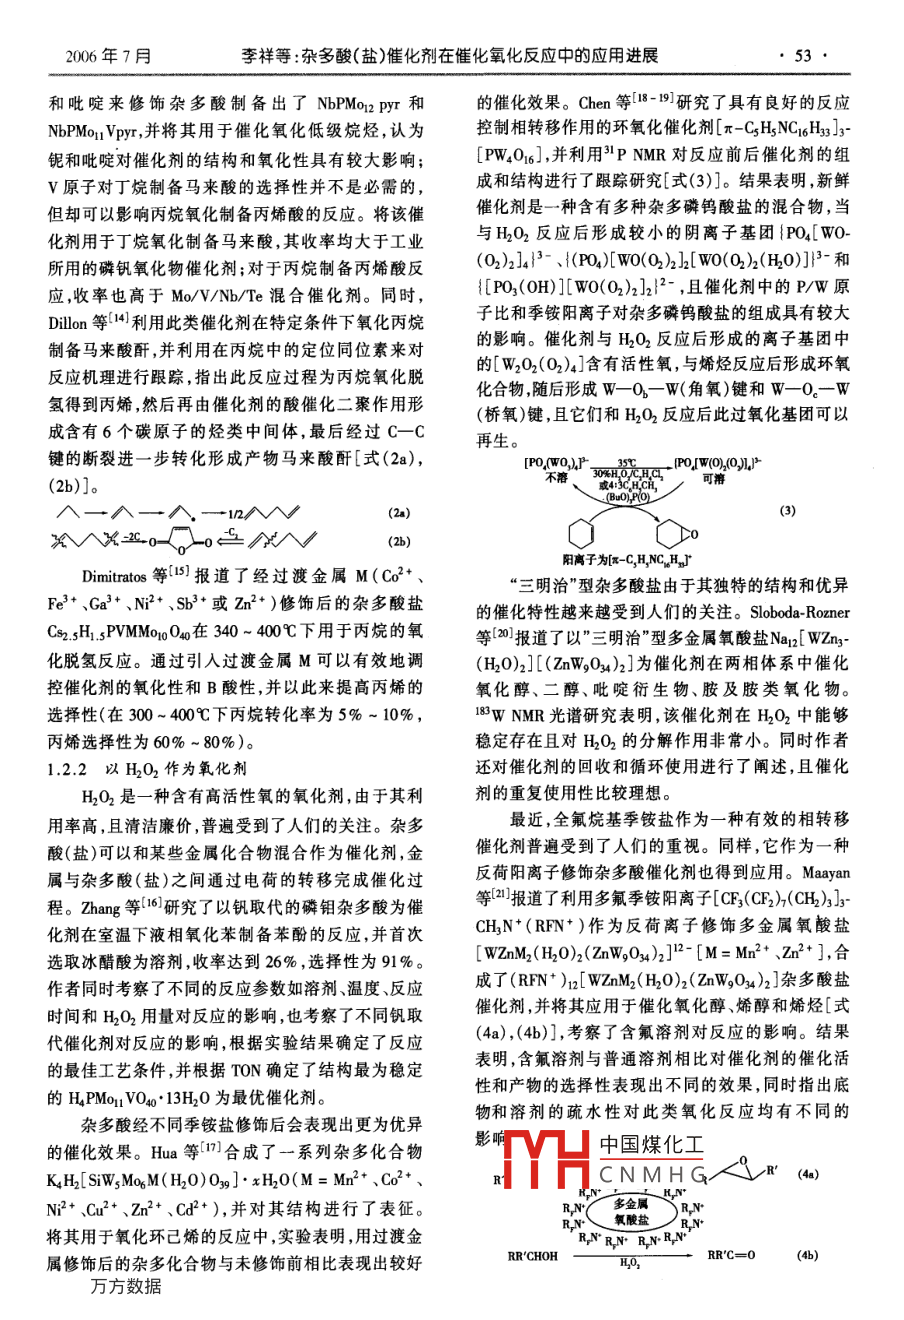 2006 年 7 月 李祥等:杂多酸(盐)催化剂在催化氧化反应中的应用进展 · 53 ·
和吡啶来修饰杂多酸制备出了 NbPMo12 pyr 和
NbPMo11Vpyr,并将其用于催化氧化低级烷烃,认为
铌和吡啶对催化剂的结构和氧化性具有较大影响;
V 原子对丁烷制备马来酸的选择性并不是必需的,
但却可以影响丙烷氧化制备丙烯酸的反应。将该催
化剂用于丁烷氧化制备马来酸,其收率均大于工业
所用的磷钒氧化物催化剂;对于丙烷制备丙烯酸反
应,收率也高于 Mo/V/Nb/Te 混合催化剂。同时,
Dillon 等[14]利用此类催化剂在特定条件下氧化丙烷
制备马来酸酐,并利用在丙烷中的定位同位素来对
反应机理进行跟踪,指出此反应过程为丙烷氧化脱
氢得到丙烯,然后再由催化剂的酸催化二聚作用形
成含有 6 个碳原子的烃类中间体,最后经过 C—C
键的断裂进一步转化形成产物马来酸酐[式(2a),
(2b)]。
1/2 (2a)
-2C O O O -C2 (2b)
Dimitratos 等[15]报道了经过渡金属 M(Co2+、
Fe3+、Ga3+、Ni2+、Sb3+ 或 Zn2+)修饰后的杂多酸盐
Cs2.5H1.5PVMMo10O40在 340 ~ 400℃下用于丙烷的氧
化脱氢反应。通过引入过渡金属 M 可以有效地调
控催化剂的氧化性和 B 酸性,并以此来提高丙烯的
选择性(在 300 ~ 400℃下丙烷转化率为 5% ~ 10%,
丙烯选择性为 60% ~ 80%)。
1.2.2 以 H2O2 作为氧化剂
H2O2 是一种含有高活性氧的氧化剂,由于其利
用率高,且清洁廉价,普遍受到了人们的关注。杂多
酸(盐)可以和某些金属化合物混合作为催化剂,金
属与杂多酸(盐)之间通过电荷的转移完成催化过
程。Zhang 等[16]研究了以钒取代的磷钼杂多酸为催
化剂在室温下液相氧化苯制备苯酚的反应,并首次
选取冰醋酸为溶剂,收率达到 26%,选择性为 91%。
作者同时考察了不同的反应参数如溶剂、温度、反应
时间和 H2O2 用量对反应的影响,也考察了不同钒取
代催化剂对反应的影响,根据实验结果确定了反应
的最佳工艺条件,并根据 TON 确定了结构最为稳定
的 H4PMo11VO40·13H2O 为最优催化剂。
杂多酸经不同季铵盐修饰后会表现出更为优异
的催化效果。Hua 等[17]合成了一系列杂多化合物
K4H2[SiW5Mo6M(H2O)O39]·xH2O(M = Mn2+、Co2+、
Ni2+、Cu2+、Zn2+、Cd2+),并对其结构进行了表征。
将其用于氧化环己烯的反应中,实验表明,用过渡金
属修饰后的杂多化合物与未修饰前相比表现出较好
的催化效果。Chen 等[18-19]研究了具有良好的反应
控制相转移作用的环氧化催化剂[π-C5H5NC16H33]3-
[PW4O16],并利用31P NMR 对反应前后催化剂的组
成和结构进行了跟踪研究[式(3)]。结果表明,新鲜
催化剂是一种含有多种杂多磷钨酸盐的混合物,当
与 H2O2 反应后形成较小的阴离子基团{PO4[WO-
(O2)2]4}3-、{(PO4)[WO(O2)2]2[WO(O2)2(H2O)]}3-和
{[PO3(OH)][WO(O2)2]2}2-,且催化剂中的 P/W 原
子比和季铵阳离子对杂多磷钨酸盐的组成具有较大
的影响。催化剂与 H2O2 反应后形成的离子基团中
的[W2O2(O2)4]含有活性氧,与烯烃反应后形成环氧
化合物,随后形成 W—Ob—W(角氧)键和 W—Oc—W
(桥氧)键,且它们和 H2O2 反应后此过氧化基团可以
再生。
[PO4(WO3)4]3- 35℃ {PO4[W(O)2(O2)]4}3-
不溶 30%H2O2/C2H4Cl2 可溶
或4:3C6H5CH3
(BuO)3P(O) (3)
O
阳离子为[π-C5H5NC16H33]+
“三明治”型杂多酸盐由于其独特的结构和优异
的催化特性越来越受到人们的关注。Sloboda-Rozner
等[20]报道了以”三明治”型多金属氧酸盐Na12[WZn3-
(H2O)2][(ZnW9O34)2]为催化剂在两相体系中催化
氧化醇、二醇、吡啶衍生物、胺及胺类氧化物。
183W NMR 光谱研究表明,该催化剂在 H2O2 中能够
稳定存在且对 H2O2 的分解作用非常小。同时作者
还对催化剂的回收和循环使用进行了阐述,且催化
剂的重复使用性比较理想。
最近,全氟烷基季铵盐作为一种有效的相转移
催化剂普遍受到了人们的重视。同样,它作为一种
反荷阳离子修饰杂多酸催化剂也得到应用。Maayan
等[21]报道了利用多氟季铵阳离子[CF3(CF2)7(CH2)3]3-
CH3N+(RFN+)作为反荷离子修饰多金属氧酸盐
[WZnM2(H2O)2(ZnW9O34)2]12-[M = Mn2+、Zn2+],合
成了(RFN+)12[WZnM2(H2O)2(ZnW9O34)2]杂多酸盐
催化剂,并将其应用于催化氧化醇、烯醇和烯烃[式
(4a),(4b)],考察了含氟溶剂对反应的影响。结果
表明,含氟溶剂与普通溶剂相比对催化剂的催化活
性和产物的选择性表现出不同的效果,同时指出底
物和溶剂的疏水性对此类氧化反应均有不同的
影响
中国煤化工
CNMHG
R O R' (4a)
RFN+ RFN+
RFN+ 多金属 RFN+
RFN+ 氧酸盐 RFN+
RFN+ RFN+ RFN+ RFN+
RR'CHOH H2O2 RR'C=O (4b)
万方数据